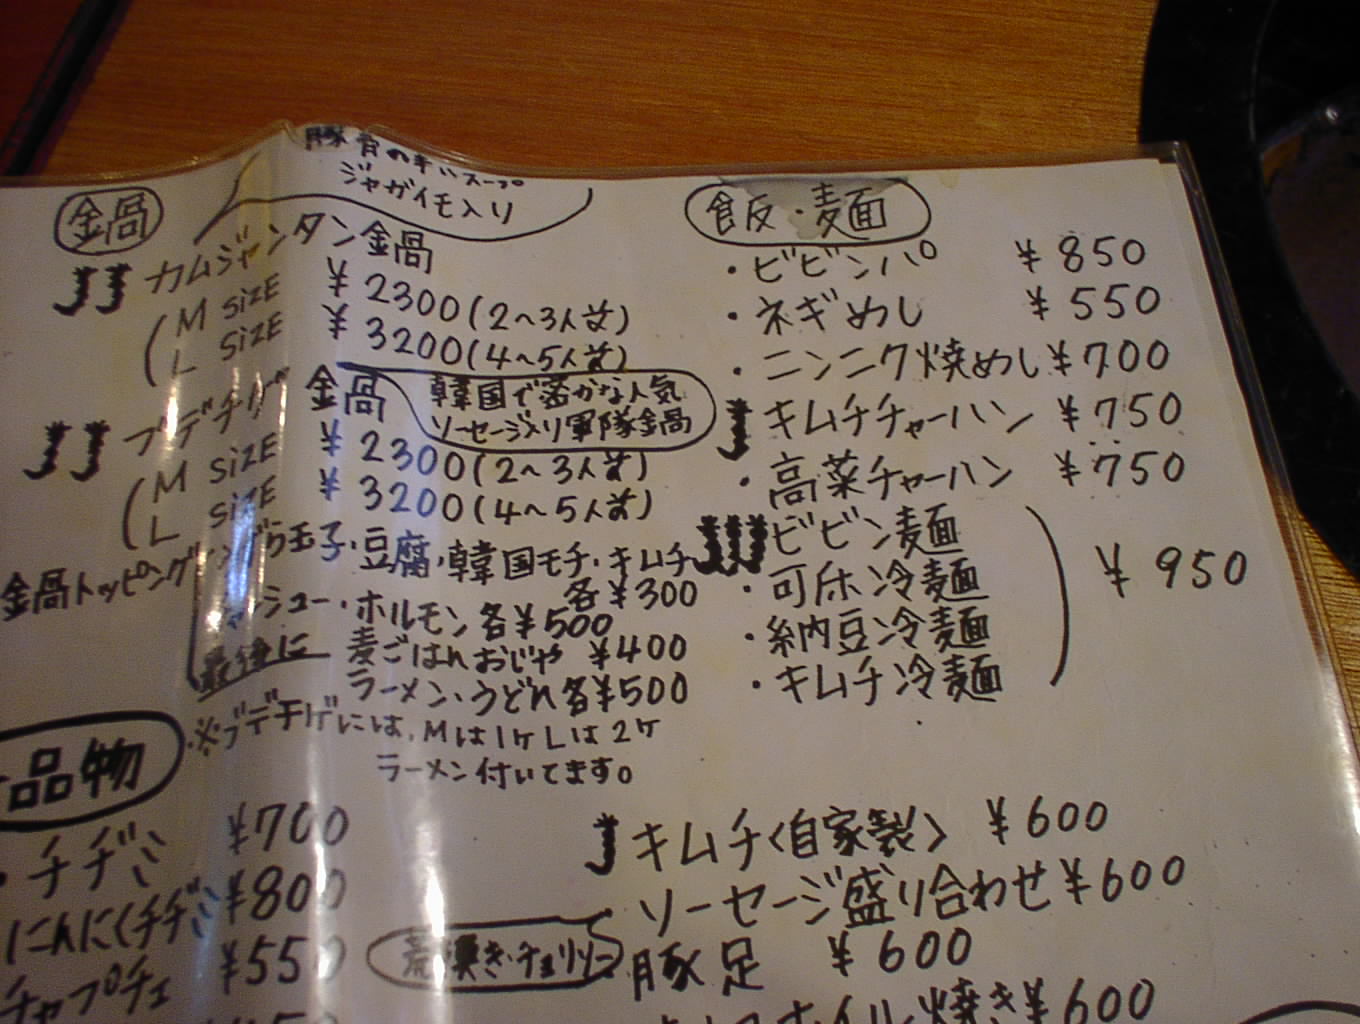 豚骨の辛いスープ
ジャガイモ入り
鍋
カムジャンタン鍋
(M SiZE ¥2300(2~3人前)
L SiZE ¥3200(4~5人前)
ブデチゲ鍋
韓国で密かな人気
ソーセージ入り軍隊鍋
(M SiZE ¥2300(2~3人前)
L SiZE ¥3200(4~5人前)
鍋トッピング
玉子・豆腐・韓国モチ・キムチ
各¥300
チャーシュー・ホルモン各¥500
最後に 麦ごはんおじや ¥400
ラーメン・うどん各¥500
※ブデチゲには、Mは1ケLは2ケ
ラーメン付いてます。
飯・麺
・ビビンパ ¥850
・ネギめし ¥550
・ニンニク焼めし ¥700
キムチチャーハン ¥750
・高菜チャーハン ¥750
ビビン麺
・冷麺
・納豆冷麺
・キムチ冷麺
¥950
品物
・チヂミ ¥700
にんにくチヂミ ¥800
チャプチェ ¥550
キムチ〈自家製〉 ¥600
ソーセージ盛り合わせ ¥600
豚足 ¥600
ホイル焼き ¥600